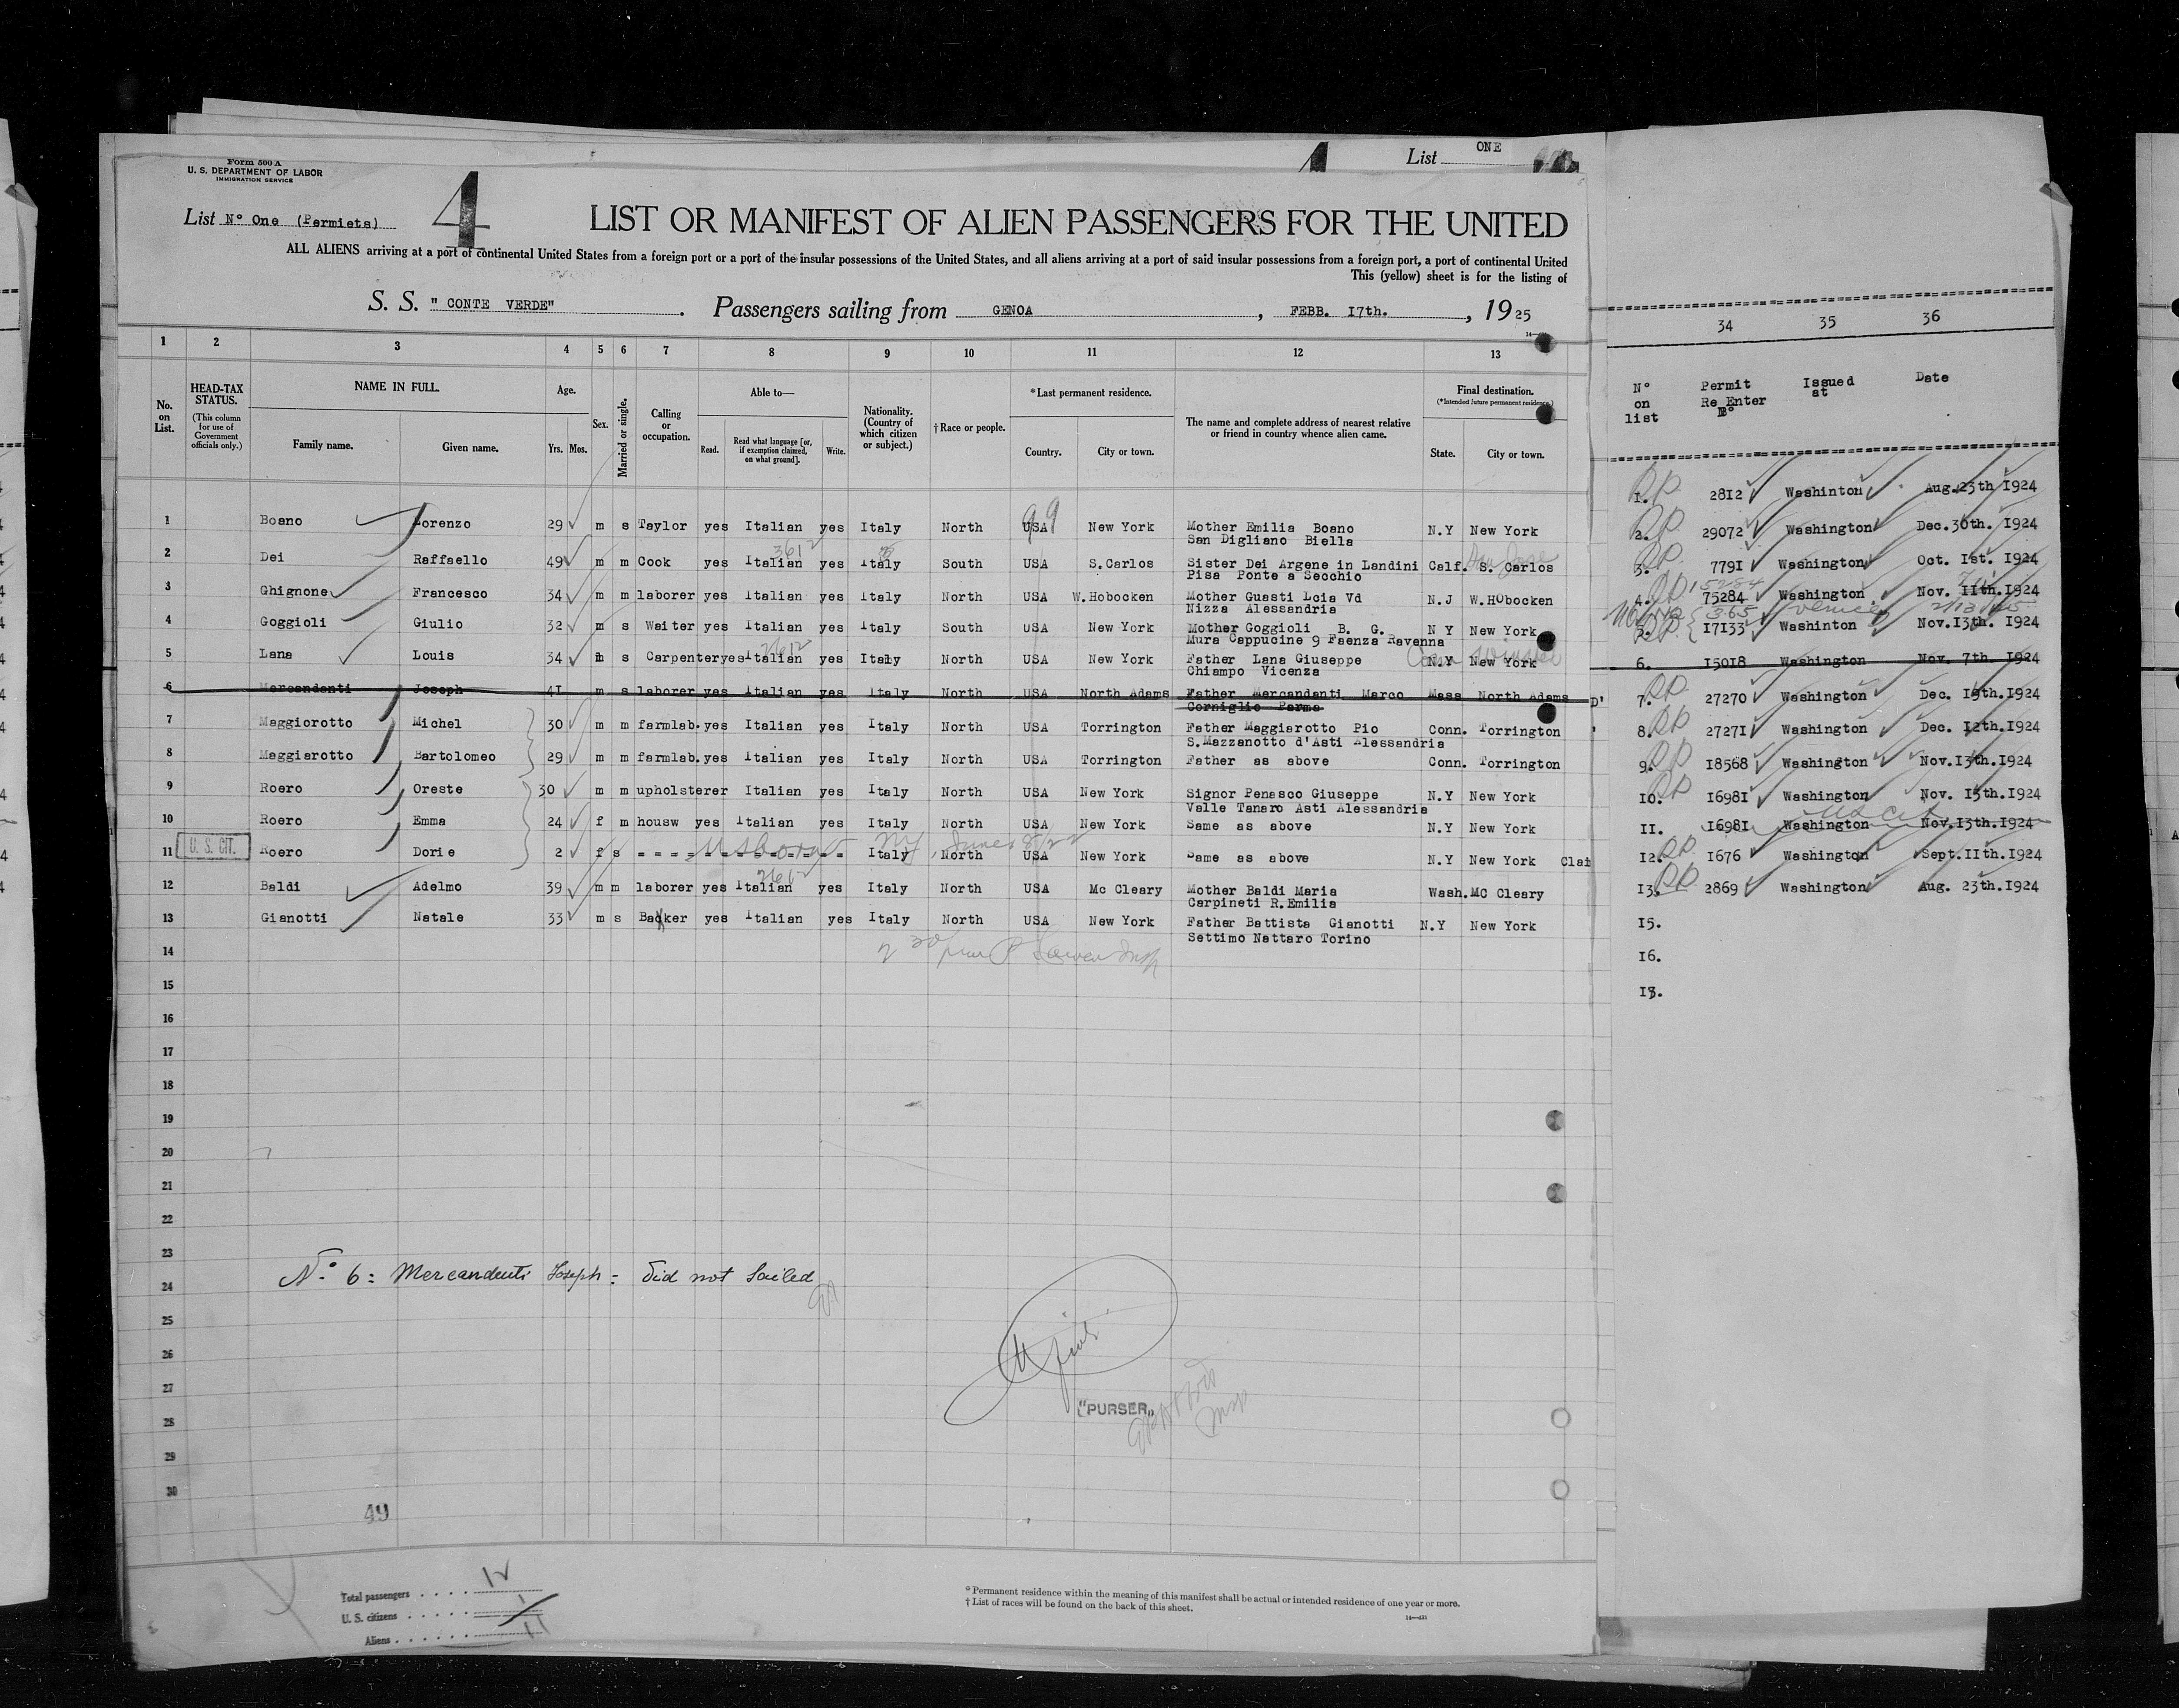 List ONE
Form 500 A
U. S. DEPARTMENT OF LABOR
IMMIGRATION SERVICE
List N° One (Permiets)
4
LIST OR MANIFEST OF ALIEN PASSENGERS FOR THE UNITED
ALL ALIENS arriving at a port of continental United States from a foreign port or a port of the insular possessions of the United States, and all aliens arriving at a port of said insular possessions from a foreign port, a port of continental United
This (yellow) sheet is for the listing of
S. S. " CONTE VERDE" . Passengers sailing from GENOA , FEBB. I7th. , 1925
1 2 3 4 5 6 7 8 9 10 11 12 13
No. on List.
HEAD-TAX STATUS.
(This column for use of Government officials only.)
NAME IN FULL.
Family name. Given name.
Age.
Yrs. Mos.
Sex.
Married or single.
Calling or occupation.
Able to—
Read. Read what language [or, if exemption claimed, on what ground]. Write.
Nationality. (Country of which citizen or subject.)
†Race or people.
*Last permanent residence.
Country. City or town.
The name and complete address of nearest relative or friend in country whence alien came.
Final destination.
(*Intended future permanent residence.)
State. City or town.
1 Boano Lorenzo 29 m s Taylor yes Italian yes Italy North USA New York Mother Emilia Boano N.Y New York
San Digliano Biella
2 Dei Raffaello 49 m m Cook yes Italian yes Italy South USA S.Carlos Sister Dei Argene in Landini Calf. S. Carlos
Pisa Ponte a Secchio
3 Ghignone Francesco 34 m m laborer yes Italian yes Italy North USA W.Hobocken Mother Guasti Lcia Vd N.J W.Hobocken
Nizza Alessandria
4 Goggioli Giulio 32 m s Waiter yes Italian yes Italy South USA New York Mother Goggioli B. G. N Y New York
Mura Cappucine 9 Faenza Ravenna
5 Lana Louis 34 m s Carpenter yes Italian yes Italy North USA New York Father Lana Giuseppe N.Y New York
Chiampo Vicenza
6 Mercandanti Joseph 4I m s laborer yes Italian yes Italy North USA North Adams Father Mercandanti Marco Mass North Adams D'
Corniglio Parma
7 Maggiorotto Michel 30 m m farmlab. yes Italian yes Italy North USA Torrington Father Maggiarotto Pio Conn. Torrington
S.Mazzanotto d'Asti Alessandria
8 Maggiarotto Bartolomeo 29 m m farmlab. yes Italian yes Italy North USA Torrington Father as above Conn. Torrington
9 Roero Oreste 30 m m upholsterer Italian yes Italy North USA New York Signor Penasco Giuseppe N.Y New York
Valle Tanaro Asti Alessandria
10 Roero Emma 24 f m housw yes Italian yes Italy North USA New York Same as above N.Y New York
11 U. S. CIT. Roero Dorie 2 f s Italy North USA New York Same as above N.Y New York Clai
12 Baldi Adelmo 39 m m laborer yes Italian yes Italy North USA Mc Cleary Mother Baldi Maria Wash. MC Cleary
Carpineti R.Emilia
13 Gianotti Natale 33 m s Baker yes Italian yes Italy North USA New York Father Battista Gianotti N.Y New York
Settimo Nattaro Torino
14
15
16
17
18
19
20
21
22
23
24
25
26
27
28
29
30
N.° 6: Mercandenti Joseph = did not Sailed
"PURSER"
49
Total passengers . . . . 12
U. S. citizens . . . . . 1
Aliens . . . . . . 11
*Permanent residence within the meaning of this manifest shall be actual or intended residence of one year or more.
†List of races will be found on the back of this sheet.
34 35 36
N° on list Permit Re Enter N° Issued at Date
1. 28I2 Washinton Aug.23th I924
2. 29072 Washington Dec.30th. I924
3. 779I Washington Oct. Ist. I924
4. 75284 Washington Nov. IIth.I924
5. I7I33 Washinton Nov.I3th. I924
6. I50I8 Washington Nov. 7th.I924
7. 27270 Washington Dec. I9th.I924
8. 2727I Washington Dec. I2th.I924
9. I8568 Washington Nov.I3th.I924
I0. I698I Washington Nov. I5th.I924
II. I698I Washington Nov.I3th.I924
I2. I676 Washington Sept.IIth.I924
I3. 2869 Washington Aug. 23th.I924
I5.
I6.